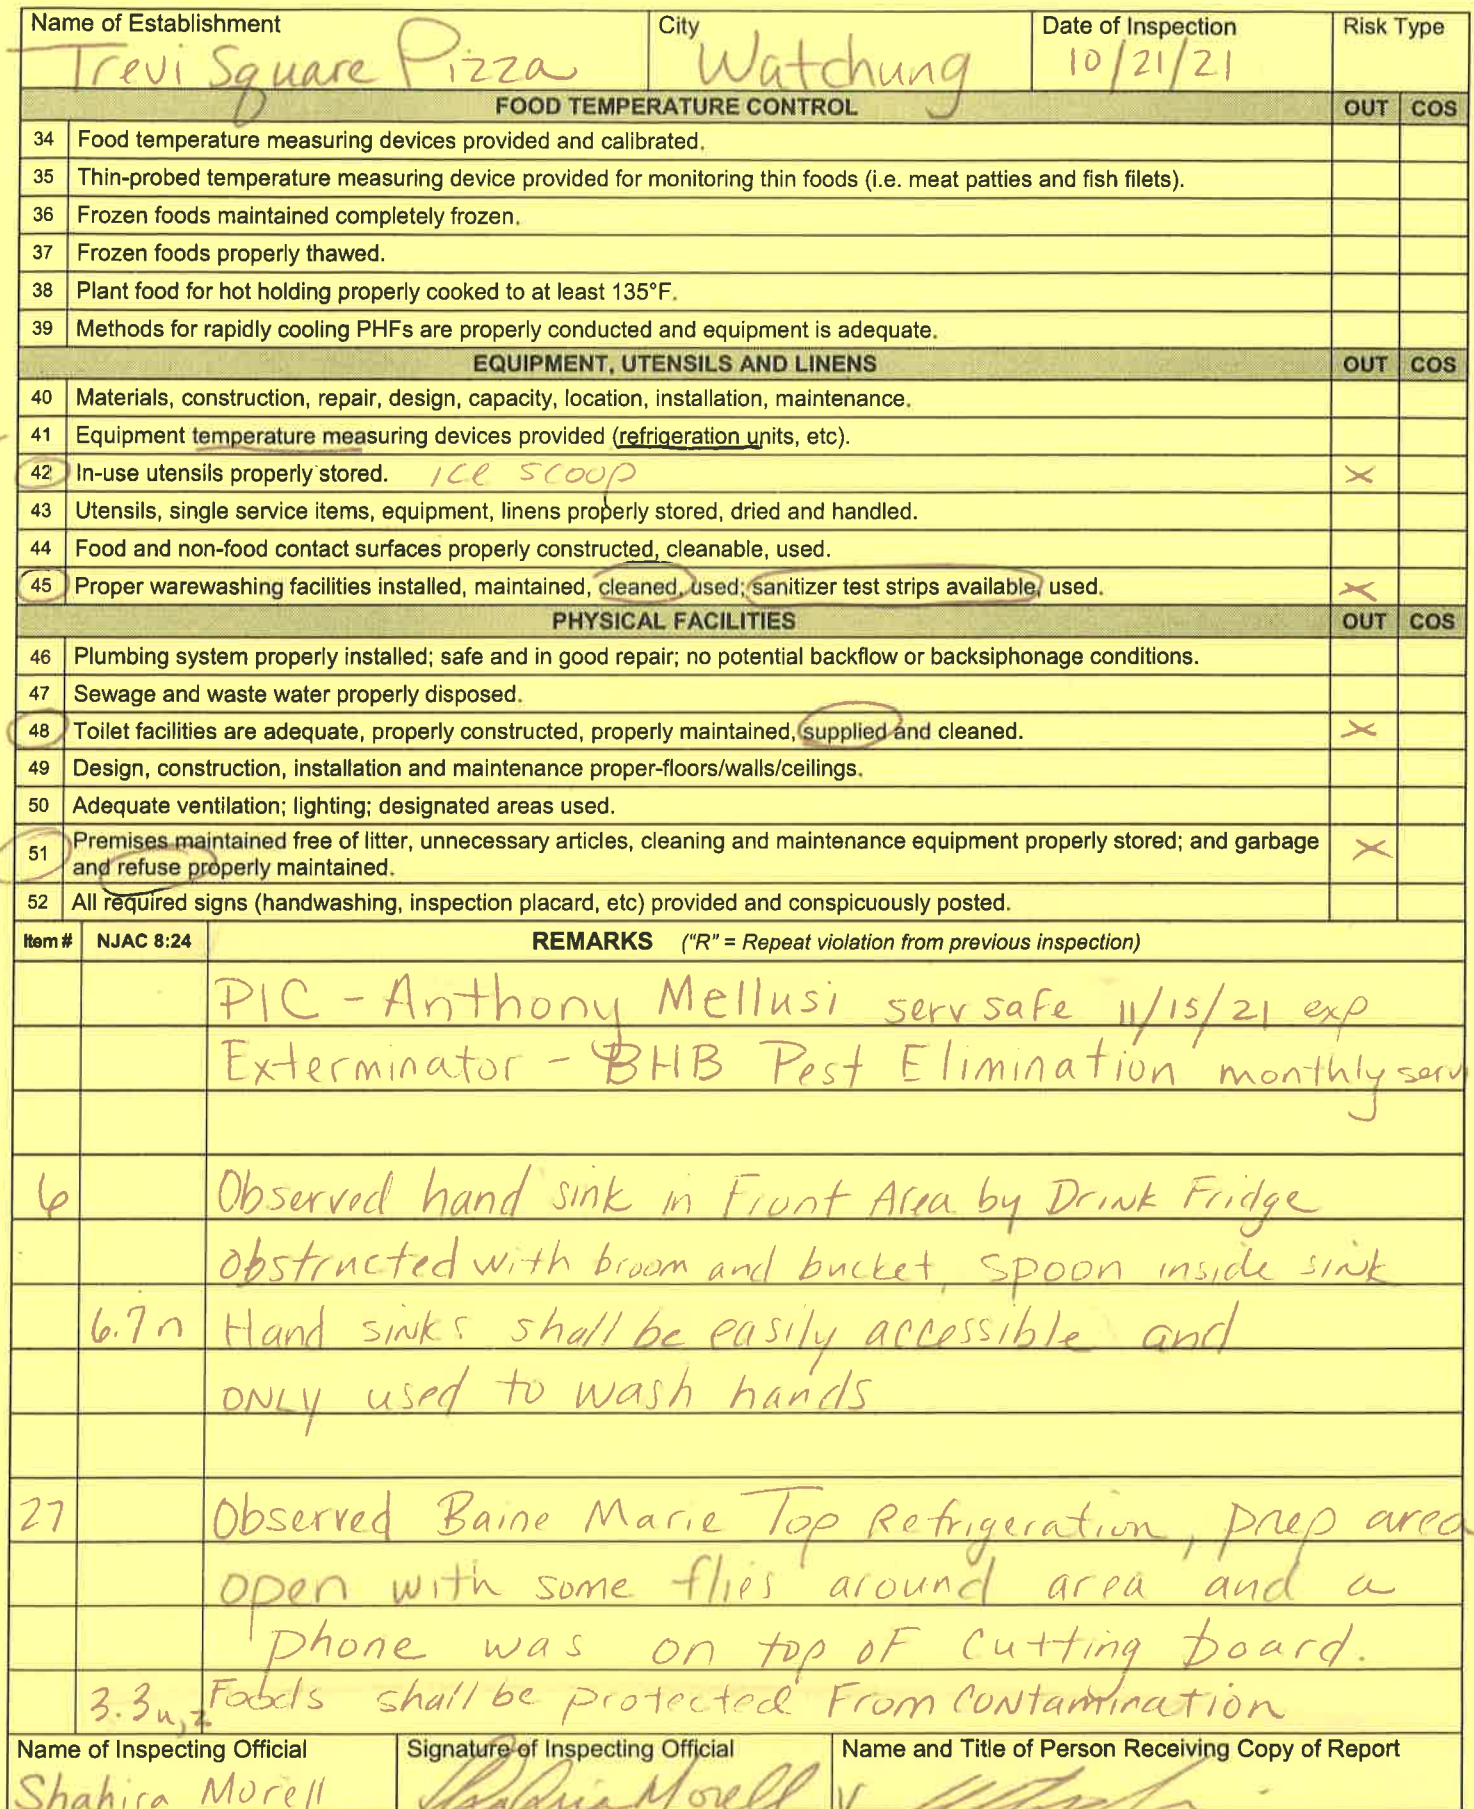 Name of Establishment City Date of Inspection Risk Type
Trevi Square Pizza Watchung 10/21/21
FOOD TEMPERATURE CONTROL OUT COS
34 Food temperature measuring devices provided and calibrated.
35 Thin-probed temperature measuring device provided for monitoring thin foods (i.e. meat patties and fish filets).
36 Frozen foods maintained completely frozen.
37 Frozen foods properly thawed.
38 Plant food for hot holding properly cooked to at least 135°F.
39 Methods for rapidly cooling PHFs are properly conducted and equipment is adequate.
EQUIPMENT, UTENSILS AND LINENS OUT COS
40 Materials, construction, repair, design, capacity, location, installation, maintenance.
41 Equipment temperature measuring devices provided (refrigeration units, etc).
42 In-use utensils properly stored. ice scoop X
43 Utensils, single service items, equipment, linens properly stored, dried and handled.
44 Food and non-food contact surfaces properly constructed, cleanable, used.
45 Proper warewashing facilities installed, maintained, cleaned, used; sanitizer test strips available, used. X
PHYSICAL FACILITIES OUT COS
46 Plumbing system properly installed; safe and in good repair; no potential backflow or backsiphonage conditions.
47 Sewage and waste water properly disposed.
48 Toilet facilities are adequate, properly constructed, properly maintained, supplied and cleaned. X
49 Design, construction, installation and maintenance proper-floors/walls/ceilings.
50 Adequate ventilation; lighting; designated areas used.
51 Premises maintained free of litter, unnecessary articles, cleaning and maintenance equipment properly stored; and garbage X
and refuse properly maintained.
52 All required signs (handwashing, inspection placard, etc) provided and conspicuously posted.
Item # NJAC 8:24 REMARKS ("R" = Repeat violation from previous inspection)
PIC - Anthony Mellusi servsafe 11/15/21 exp
Exterminator - BHB Pest Elimination monthly serv
6 Observed hand sink in Front Area by Drink Fridge
obstructed with broom and bucket, spoon inside sink
6.7n Hand sinks shall be easily accessible and
ONLY used to wash hands
27 Observed Baine Marie Top Refrigeration, prep area
open with some flies around area and a
phone was on top of cutting board.
3.3u,z Foods shall be protected From contamination
Name of Inspecting Official Signature of Inspecting Official Name and Title of Person Receiving Copy of Report
Shahira Morell